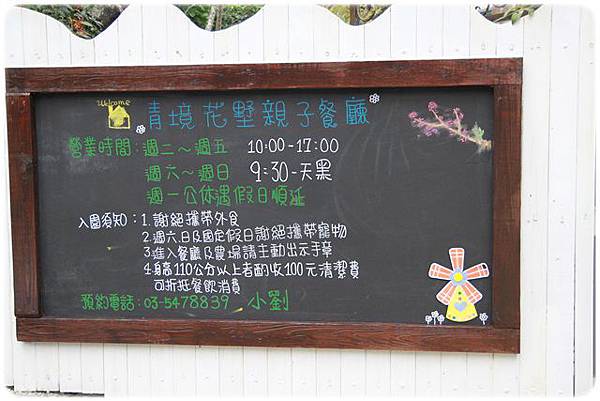 Welcome
青境花墅親子餐廳
營業時間：週二～週五 10:00-17:00
週六～週日 9:30-天黑
週一公休遇假日順延
入園須知：1.謝絕攜帶外食
2.週六.日及國定假日謝絕攜帶寵物
3.進入餐廳及農場請主動出示手章
4.身高110公分以上者酌收100元清潔費
可折抵餐飲消費
預約電話：03-5478839 小劉